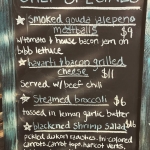 CHEF SPECIALS
★ smoked gouda jalepeno
meatballs $9
w/tomato & house bacon jam on
bibb lettuce
★ havarti & bacon grilled
cheese $11
Served w/ beef chili
★ Steamed broccoli $6
tossed in lemon garlic butter
★ blackened Shrimp Salad $16
pickled daikon radishes, tri-colored
carrots,